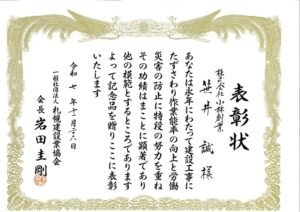 表彰状
株式会社 小林創業
笹井 誠 様
あなたは永年にわたって建設工事に
たずさわり作業能率の向上と労働
災害の防止に特段の努力を重ね
その功績はまことに顕著であり
他の模範とするところであります
よって記念品を贈りここに表彰
いたします
令和七年十一月二十八日
一般社団法人 札幌建設業協会
会長 岩田圭剛